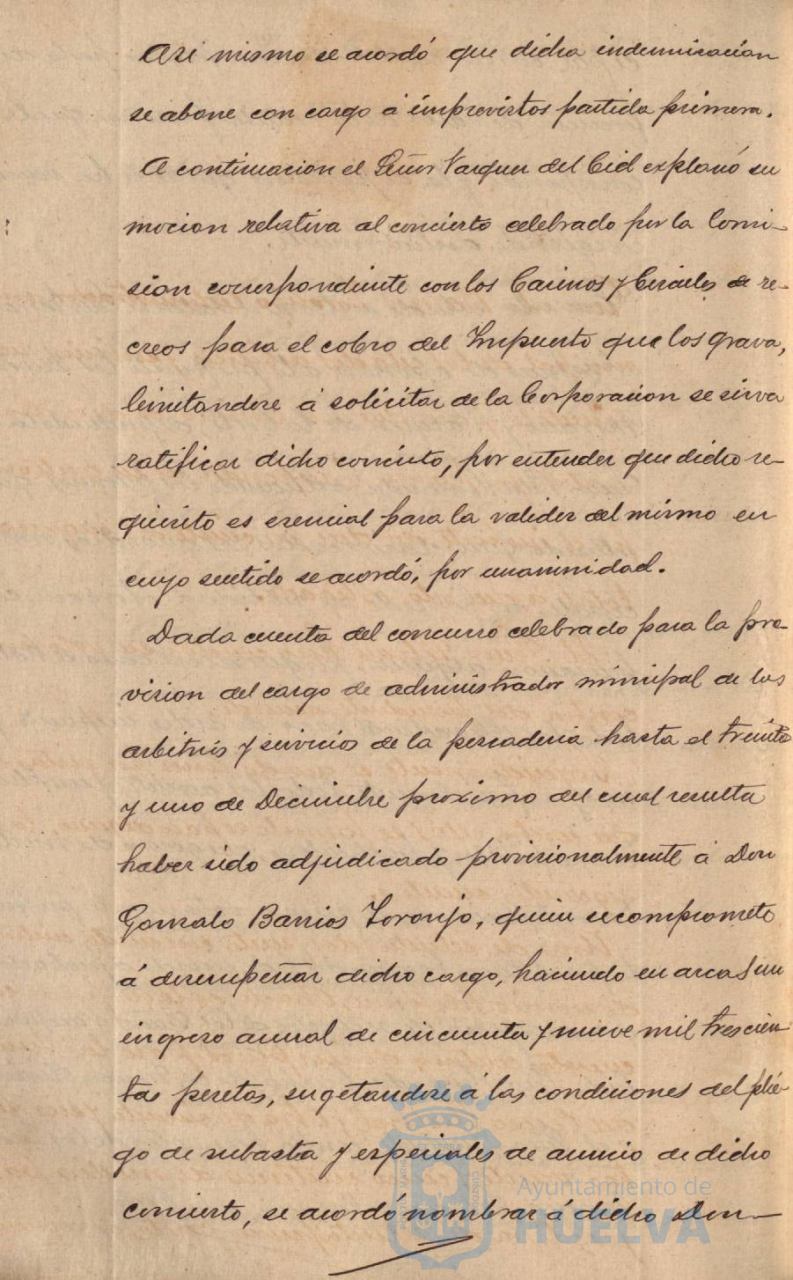 Asi mismo se acordó que dicha indemnizacion
se abone con cargo á imprevistos partida primera.
A continuacion el Señor Vazquez del Cid explanó su
mocion relativa al concierto celebrado por la Comi-
sion correspondiente con los Casinos y Circulos de re-
creos para el cobro del Impuesto que los grava,
limitandose á solicitar de la Corporacion se sirva
ratificar dicho concierto, por entender que dicho re-
quisito es esencial para la validez del mismo en
cuyo sentido se acordó, por unanimidad.
Dada cuenta del concurso celebrado para la pro-
vision del cargo de administrador municipal de los
arbitrios y servicios de la pescaderia hasta el treinta
y uno de Diciembre proximo del cual resulta
haber sido adjudicado provisionalmente á Don
Gonzalo Barrios Toronjo, quien se compromete
á desempeñar dicho cargo, haciendo en arcas un
ingreso anual de cincuenta y nueve mil trescien-
tas pesetas, sugetandose á las condiciones del plie-
go de subasta y especiales de anuncio de dicho
concierto, se acordó nombrar á dicho Don
Ayuntamiento de
HUELVA